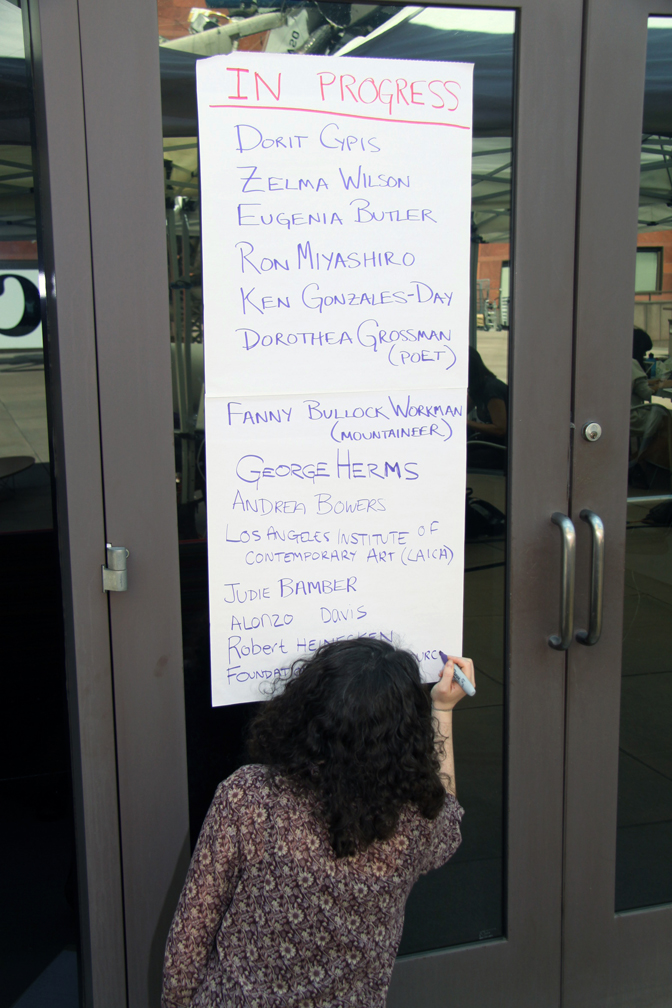 IN PROGRESS
DORIT CYPIS
ZELMA WILSON
EUGENIA BUTLER
RON MIYASHIRO
KEN GONZALES-DAY
DOROTHEA GROSSMAN
(POET)
FANNY BULLOCK WORKMAN
(MOUNTAINEER)
GEORGE HERMS
ANDREA BOWERS
LOS ANGELES INSTITUTE OF
CONTEMPORARY ART (LAICA)
JUDIE BAMBER
ALONZO DAVIS
Robert HEINECKEN